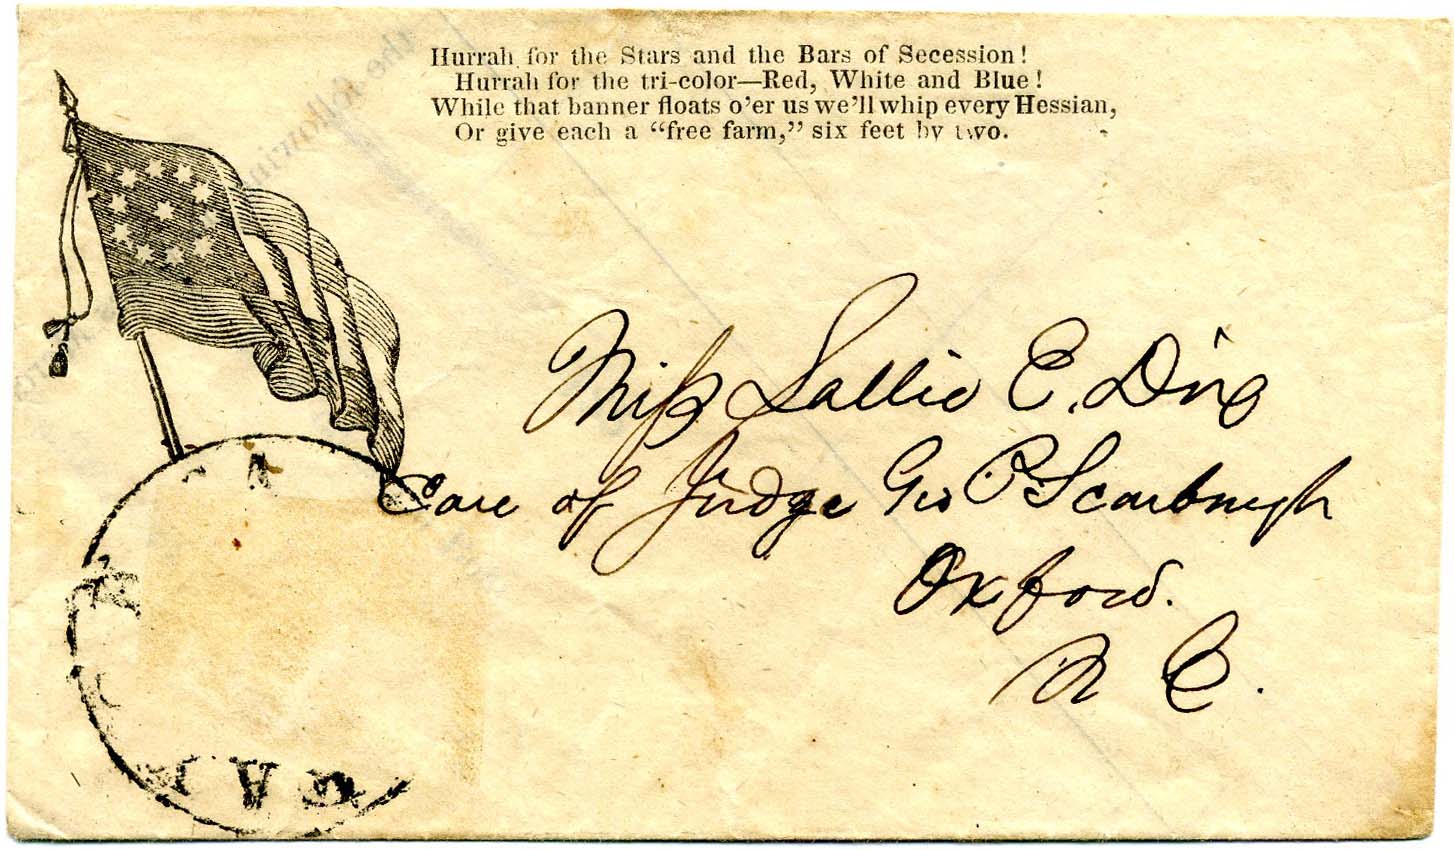 Hurrah for the Stars and the Bars of Secession!
Hurrah for the tri-color—Red, White and Blue!
While that banner floats o'er us we'll whip every Hessian,
Or give each a "free farm," six feet by two.
Miss Sallie E.
Care of Judge Geo P Scarbrugh
Oxford.
N C.